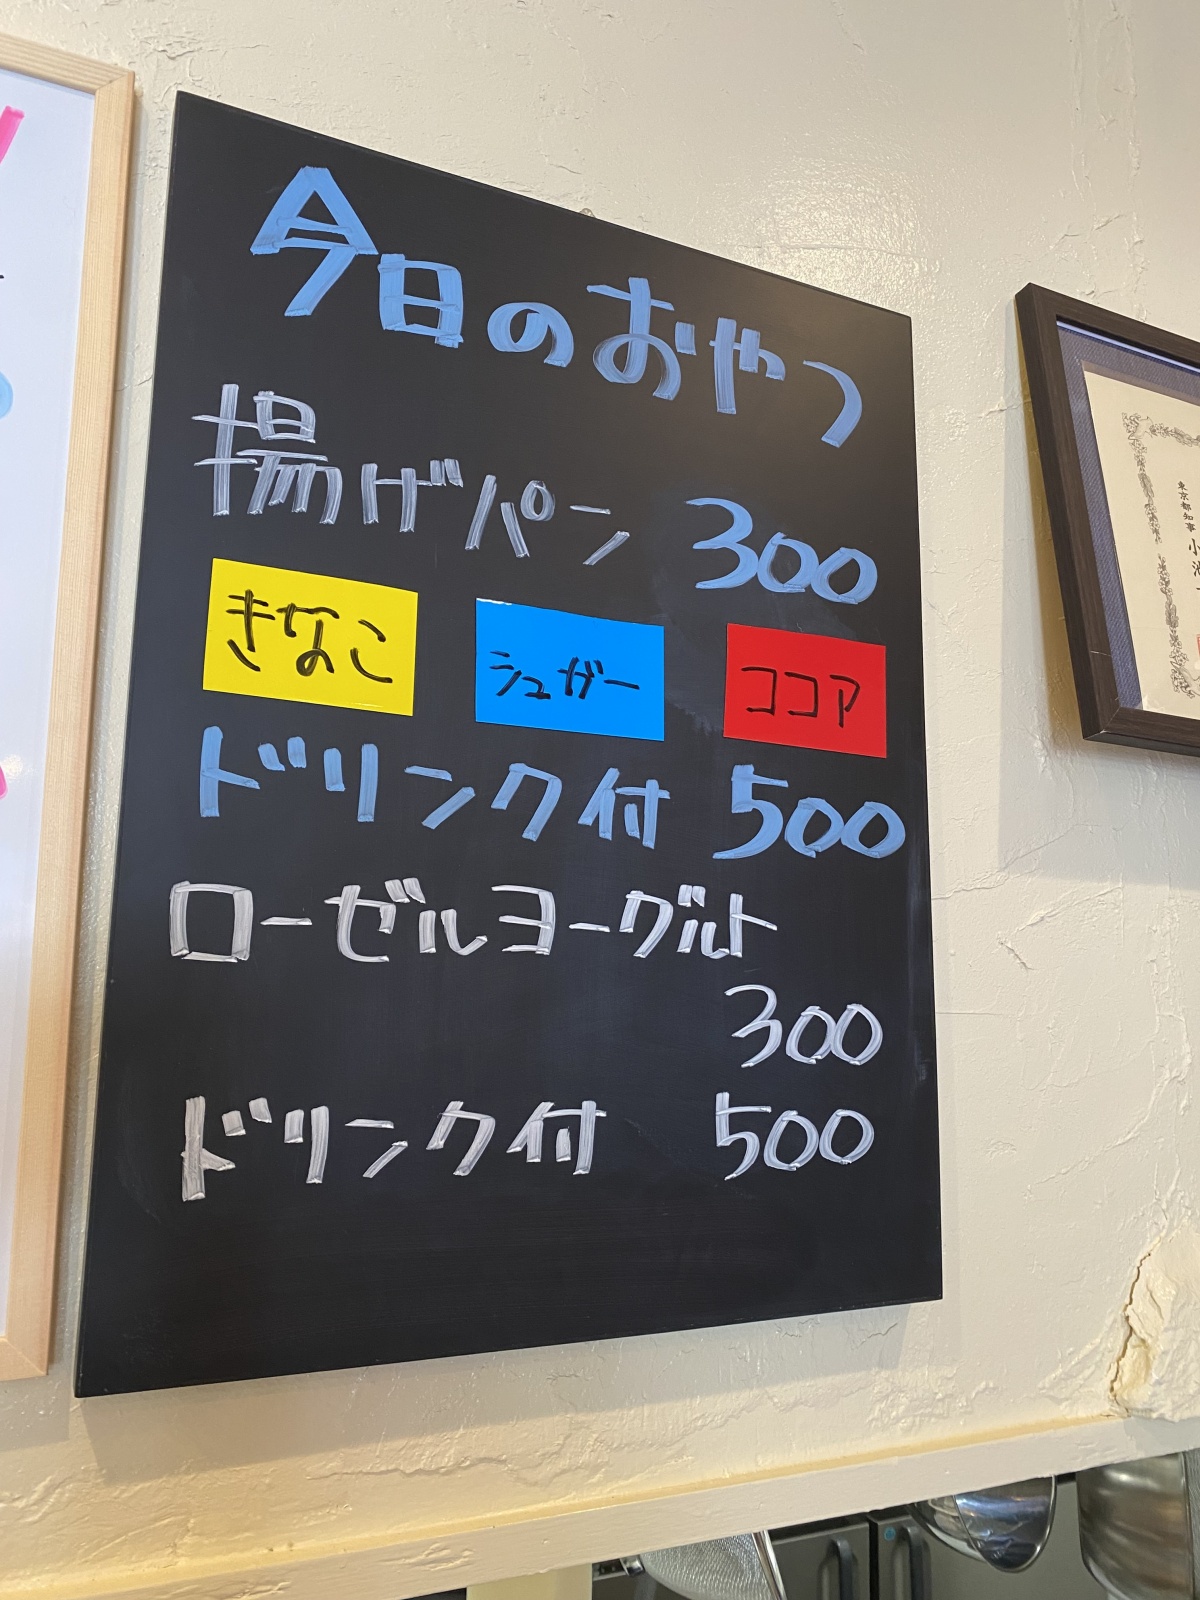 今日のおやつ
揚げパン 300
きなこ シュガー ココア
ドリンク付 500
ローゼルヨーグルト
300
ドリンク付 500
東京都知事
小池